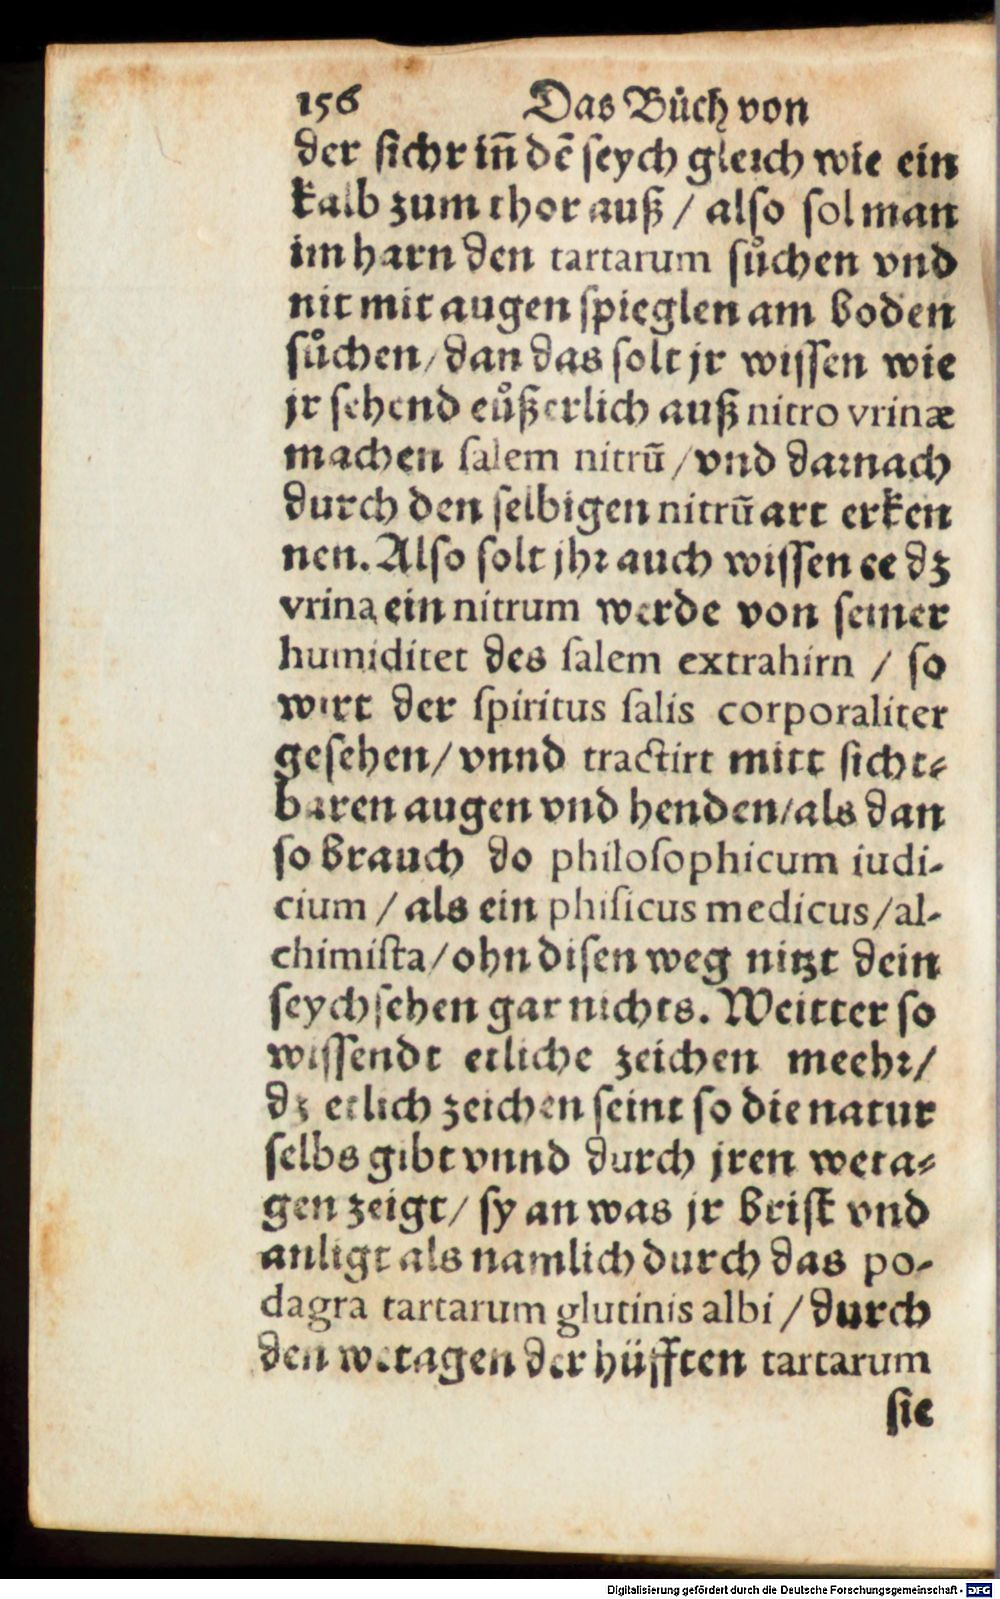 156 Das Bůch von
der sicht iñ dē seych gleich wie ein
kalb zum thor auß / also sol man
im harn den tartarum sůchen vnd
nit mit augen spieglen am boden
sůchen / dan das solt jr wissen wie
jr sehend eůßerlich auß nitro vrinæ
machen salem nitrū / vnd darnach
durch den selbigen nitrū art erken
nen. Also solt jhr auch wissen ee dz
vrina ein nitrum werde von seiner
humiditet des salem extrahirn / so
wirt der spiritus salis corporaliter
gesehen / vnnd tractirt mitt sicht⸗
baren augen vnd henden / als dan
so brauch do philosophicum iudi-
cium / als ein phisicus medicus / al-
chimista / ohn disen weg nitzt dein
seychsehen gar nichts. Weitter so
wissendt etliche zeichen meehr /
dz etlich zeichen seint so die natur
selbs gibt vnnd durch jren weta⸗
gen zeigt / sy an was jr brist vnd
anligt als namlich durch das po-
dagra tartarum glutinis albi / durch
den wetagen der hüfften tartarum
sie
Digitalisierung gefördert durch die Deutsche Forschungsgemeinschaft - DFG